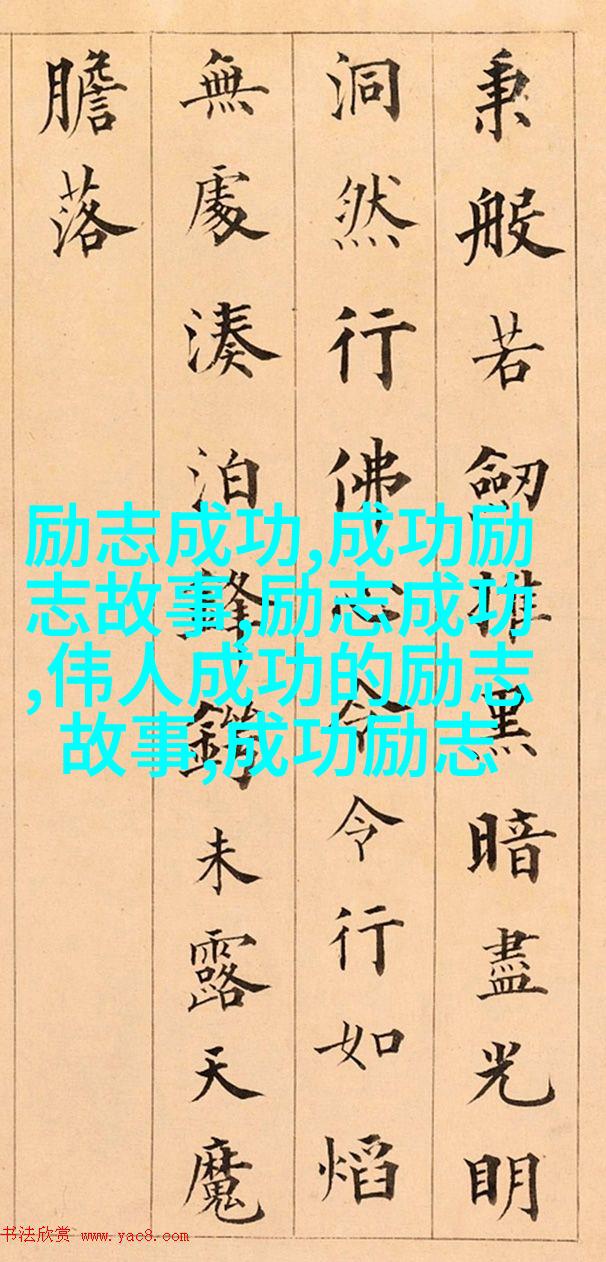 秉般若劒摧黑暗盡光明
洞然行佛心令令行如熖
無處湊泊鋒鍔未露天魔
膽落
励志成功,成功励
志故事,励志成功
,伟人成功的励志
故事,成功励志
书法欣赏 www.yac8.com